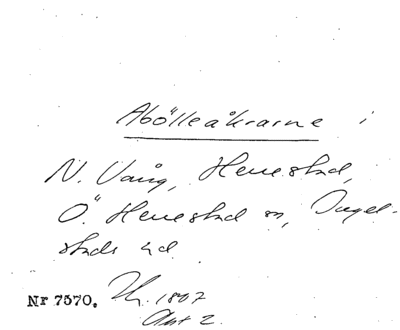 Abölleåkrarne i
N. Vång, Herrestad,
Ö. Herrestad sn, Ingel-
stads hd
Nr 7570. Th. 1807
Akt 2.